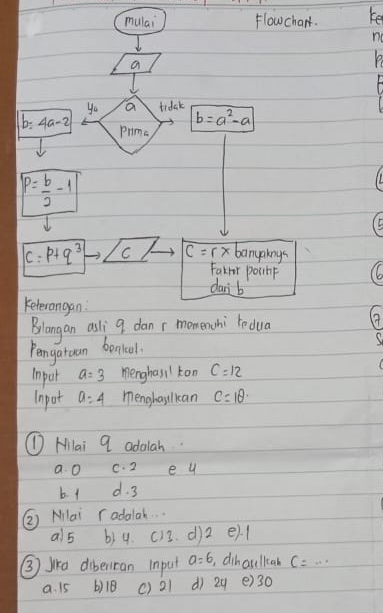 mulai
Flowchart.
a
ya
a
prima
tidak
b = 4a-2
b = a²-a
P = b/2 - 1
C = P+q³
C
C = r x banyaknya
Faktor positif
dari b
Keterangan :
Bilangan asli q dan r memenuhi kedua
Pernyataan berikut.
Input a = 3 Menghasilkan C = 12
Input a = 4 Menghasilkan C = 18.
① Nilai q adalah ..
a. 0 c. 2 e 4
b. 1 d. 3
② Nilai r adalah ...
a) 5 b) 4. c) 3. d) 2 e) 1
③ Jika diberikan input a=6, dihasilkan C = ...
a. 15 b) 18 c) 21 d) 24 e) 30